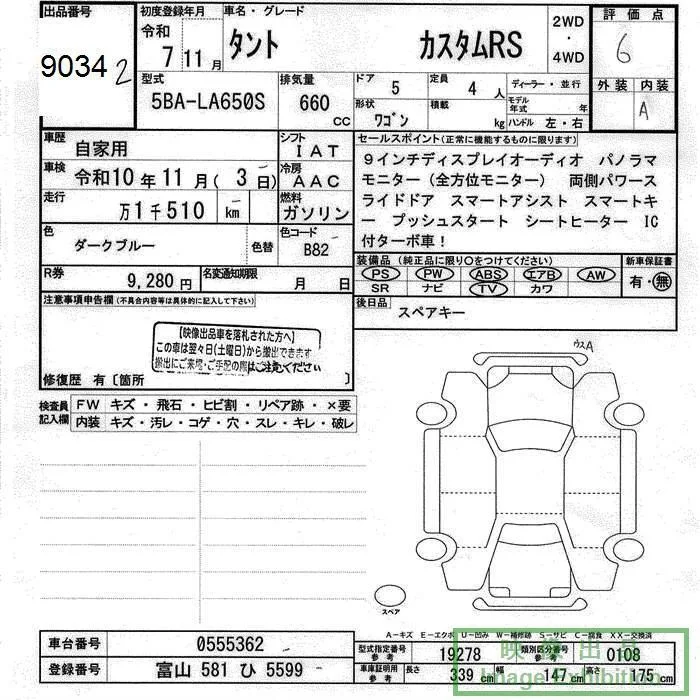 出品番号
9034 2
初度登録年月
令和
7 11 月
車名・グレード
タント カスタムRS
2WD
・
4WD
評価点
6
外装 内装
A
型式
5BA-LA650S
排気量
660
cc
ドア
5
定員
4 人
ディーラー・並行
形状
ワゴン
積載
kg
モデル
年式 年
ハンドル 左・右
車歴
自家用
シフト
IAT
車検
令和10年11月(3日)
冷房
AAC
走行
万1千510 km
燃料
ガソリン
色
ダークブルー
色替
色コード
B82
R券
9,280円
名変通知期限
月 日
セールスポイント(正常に機能するものに限ります)
9インチディスプレイオーディオ パノラマ
モニター(全方位モニター) 両側パワース
ライドドア スマートアシスト スマートキ
ー プッシュスタート シートヒーター IC
付ターボ車!
装備品(純正品に限り〇をつけてください)
PS PW ABS エアB AW
SR ナビ TV カワ
新車保証書
有・無
後日品
スペアキー
注意事項申告欄(不具合内容等は具体的に記入して下さい)
【映像出品車を落札された方へ】
この車は翌々日(土曜日)から搬出できます
搬出にご来場・ご手配の際はご注意ください
修復歴 有〔箇所 〕
検査員
記入欄
FW キズ・飛石・ヒビ割・リペア跡・×要
内装 キズ・汚レ・コゲ・穴・スレ・キレ・破レ
ウスA
スペア
A-キズ E-エクボ U-凹み W-補修跡 S-サビ C-腐食 XX-交換済
車台番号
0555362
登録番号
富山 581 ひ 5599
型式指定番号
参考
19278
類別区分番号
参考
0108
車庫証明用
参考
長さ
339 cm
幅
147 cm
高さ
175 cm
映像出品
Image Exhibition